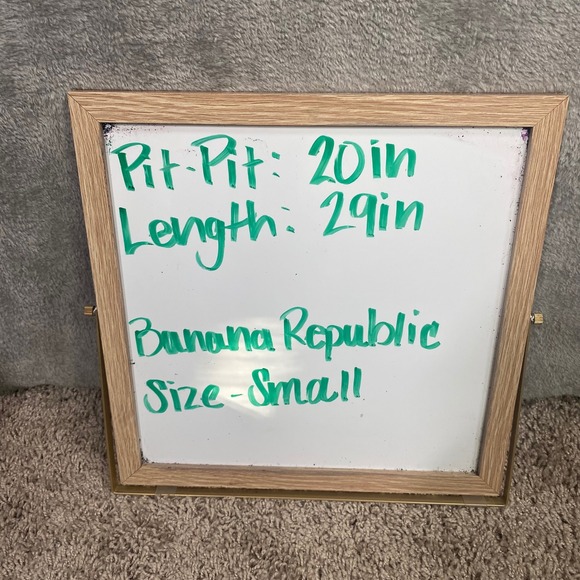 Pit-Pit: 20in
Length: 29in
Banana Republic
Size-Small